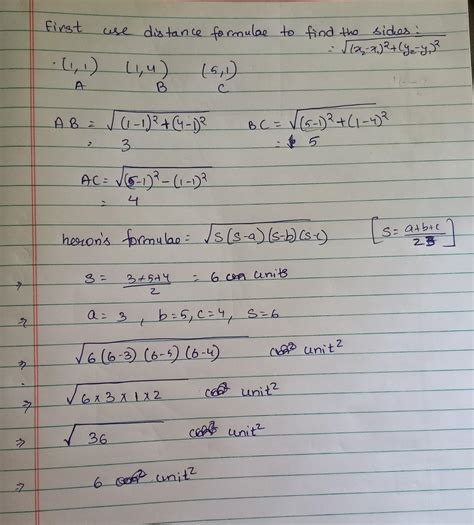 First use distance formulae to find the sides:
= √(x₂-x₁)²+(y₂-y₁)²
(1,1) (1,4) (5,1)
A B C
AB = √(1-1)²+(4-1)² BC = √(5-1)²+(1-4)²
= 3 = 5
AC = √(5-1)²-(1-1)²
= 4
heron's formulae = √s(s-a)(s-b)(s-c) [s = a+b+c/2]
⇒ s = 3+5+4/2 = 6 units
⇒ a = 3, b=5, c=4, s=6
⇒ √6(6-3)(6-5)(6-4) unit²
⇒ √6×3×1×2 unit²
⇒ √36 unit²
⇒ 6 unit²